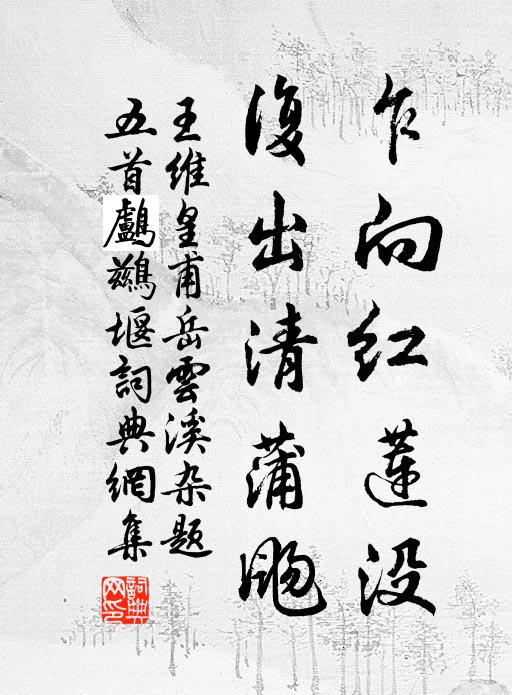 乍向红蓮没
復出清蒲飏
王維皇甫岳雲溪杂题
五首鸕鷀堰詞典網集